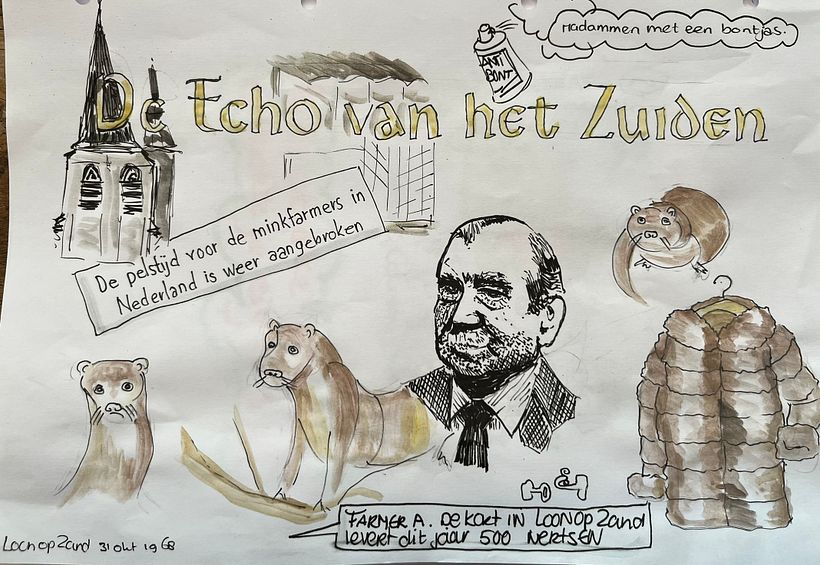 Madammen met een bontjas.
ANTI
BONT
De Echo van het Zuiden
De pelstijd voor de minkfarmers in
Nederland is weer aangebroken
FARMER A. de Kort IN Loon op Zand
levert dit jaar 500 NERTSEN
Loon op Zand 31 okt 1968